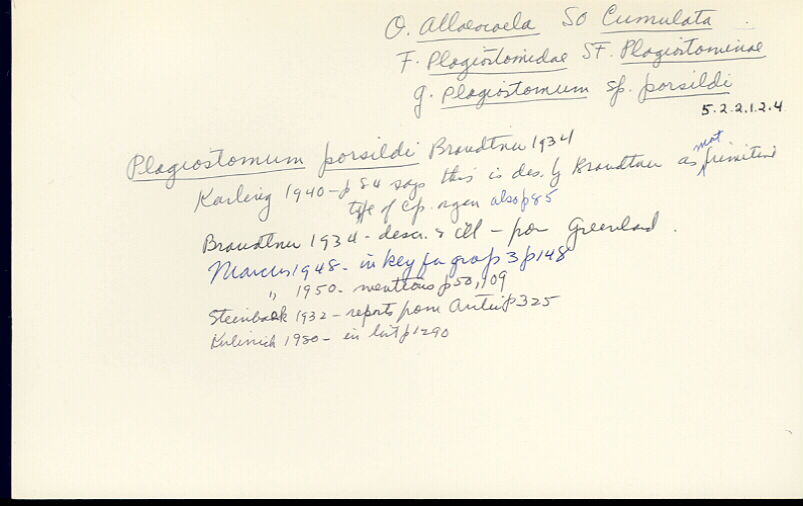 O. Alloeocoela SO Cumulata
F. Plagiostomidae SF. Plagiostominae
g. Plagiostomum sp. porsildi
5.2.2.1.2.4
Plagiostomum porsildi Brandtner 1934
not
Karling 1940 - p 84 says this is des. by Brandtner as primitive
type of cp. organ also p 85
Brandtner 1934 - descr. & ill - from Greenland.
Marcus 1948 - in key for group 3 p 148
" 1950 - mentions p 50, 109
Steinböck 1932 - reports from p 325
Kulinich 1980 - in list p 1290